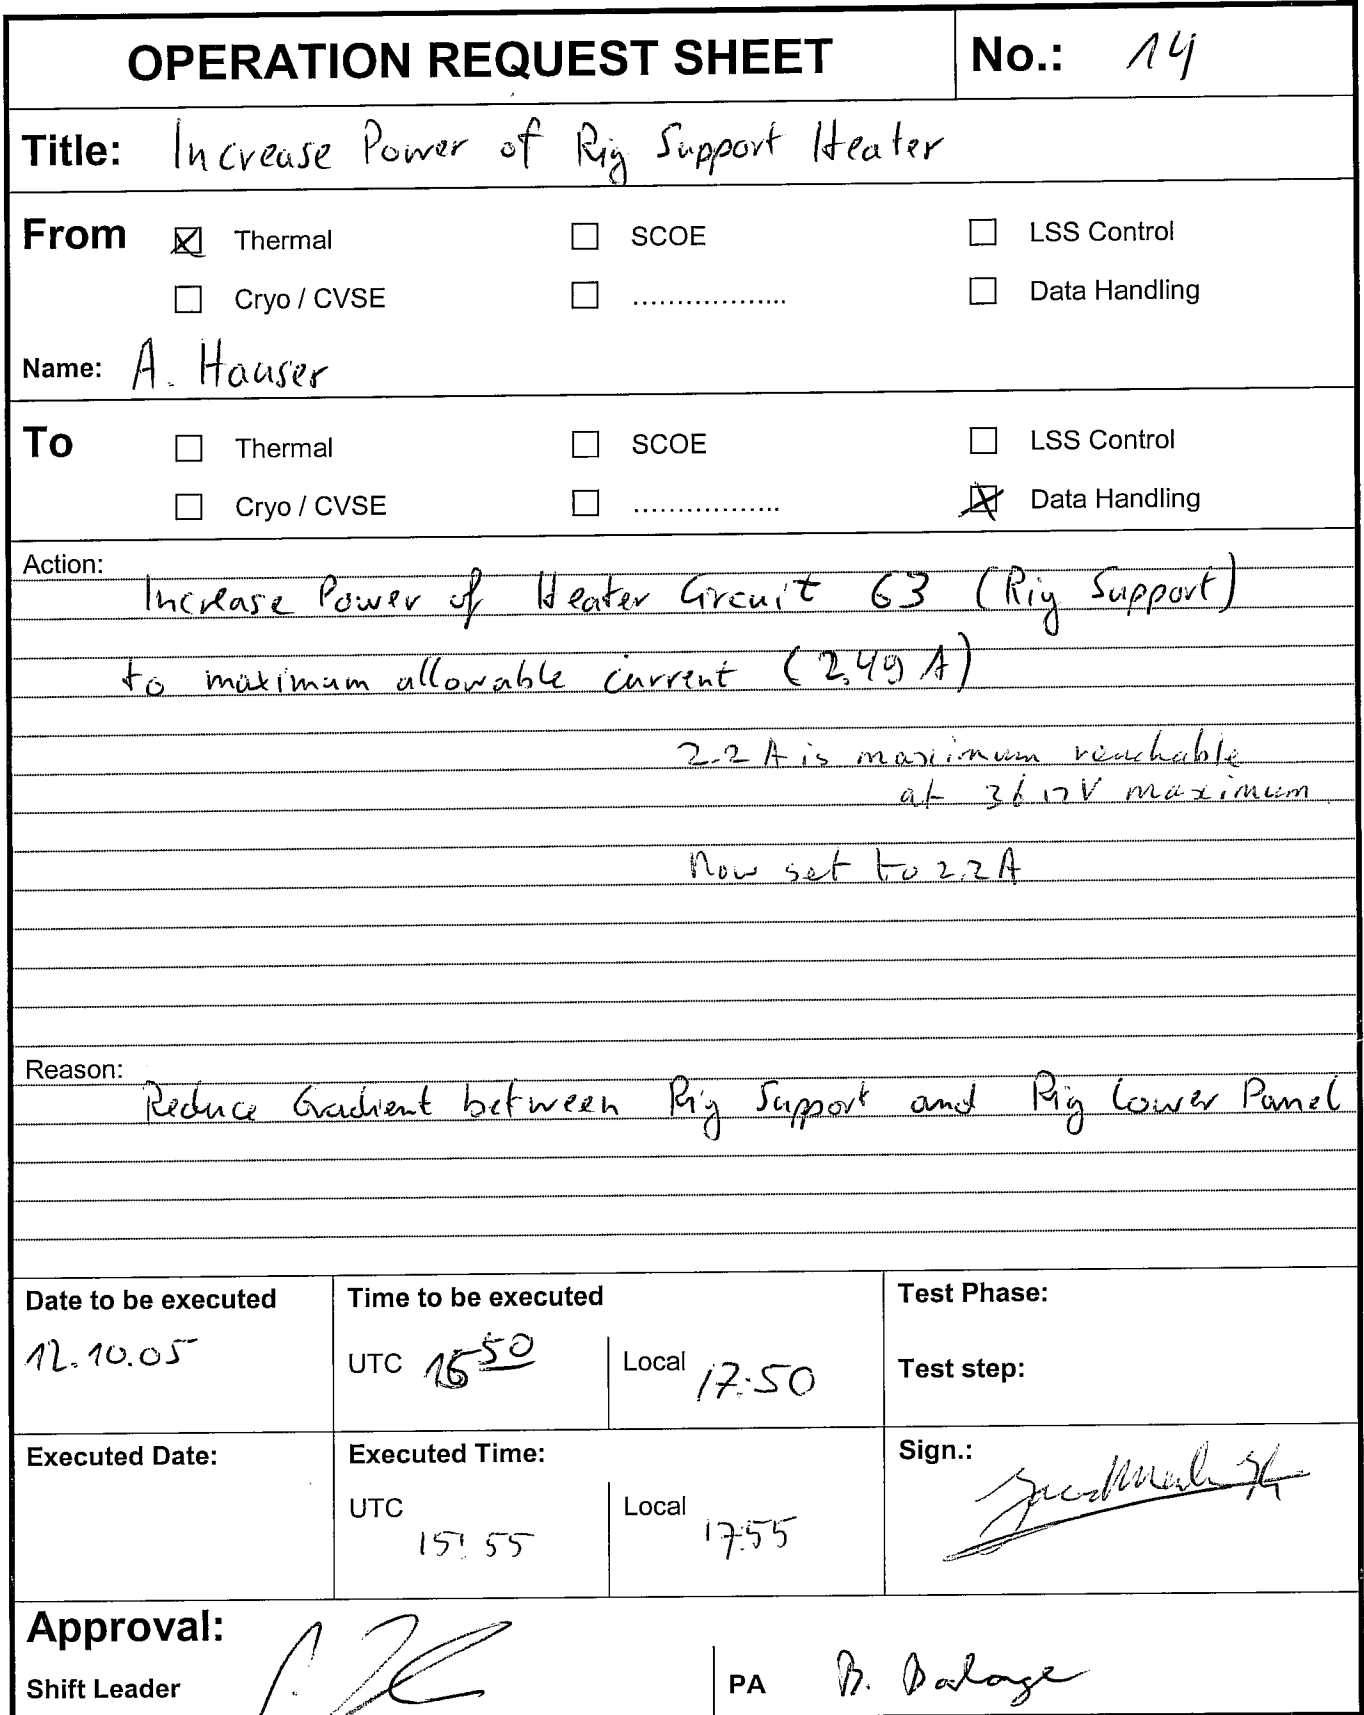 OPERATION REQUEST SHEET No.: 14
Title: Increase Power of Rig Support Heater
From ☒ Thermal ☐ SCOE ☐ LSS Control
☐ Cryo / CVSE ☐ .................. ☐ Data Handling
Name: A. Hauser
To ☐ Thermal ☐ SCOE ☐ LSS Control
☐ Cryo / CVSE ☐ ................. ☒ Data Handling
Action:
Increase Power of Heater Circuit 63 (Rig Support)
to maximum allowable current (2.49 A)
2.2 A is maximum reachable
at maximum
Now set to 2.2A
Reason:
Reduce Gradient between Rig Support and Rig Lower Panel
Date to be executed Time to be executed Test Phase:
12.10.05 UTC 50 Local 17:50 Test step:
Executed Date: Executed Time: Sign.:
UTC 15:55 Local 17:55
Approval:
Shift Leader PA B.